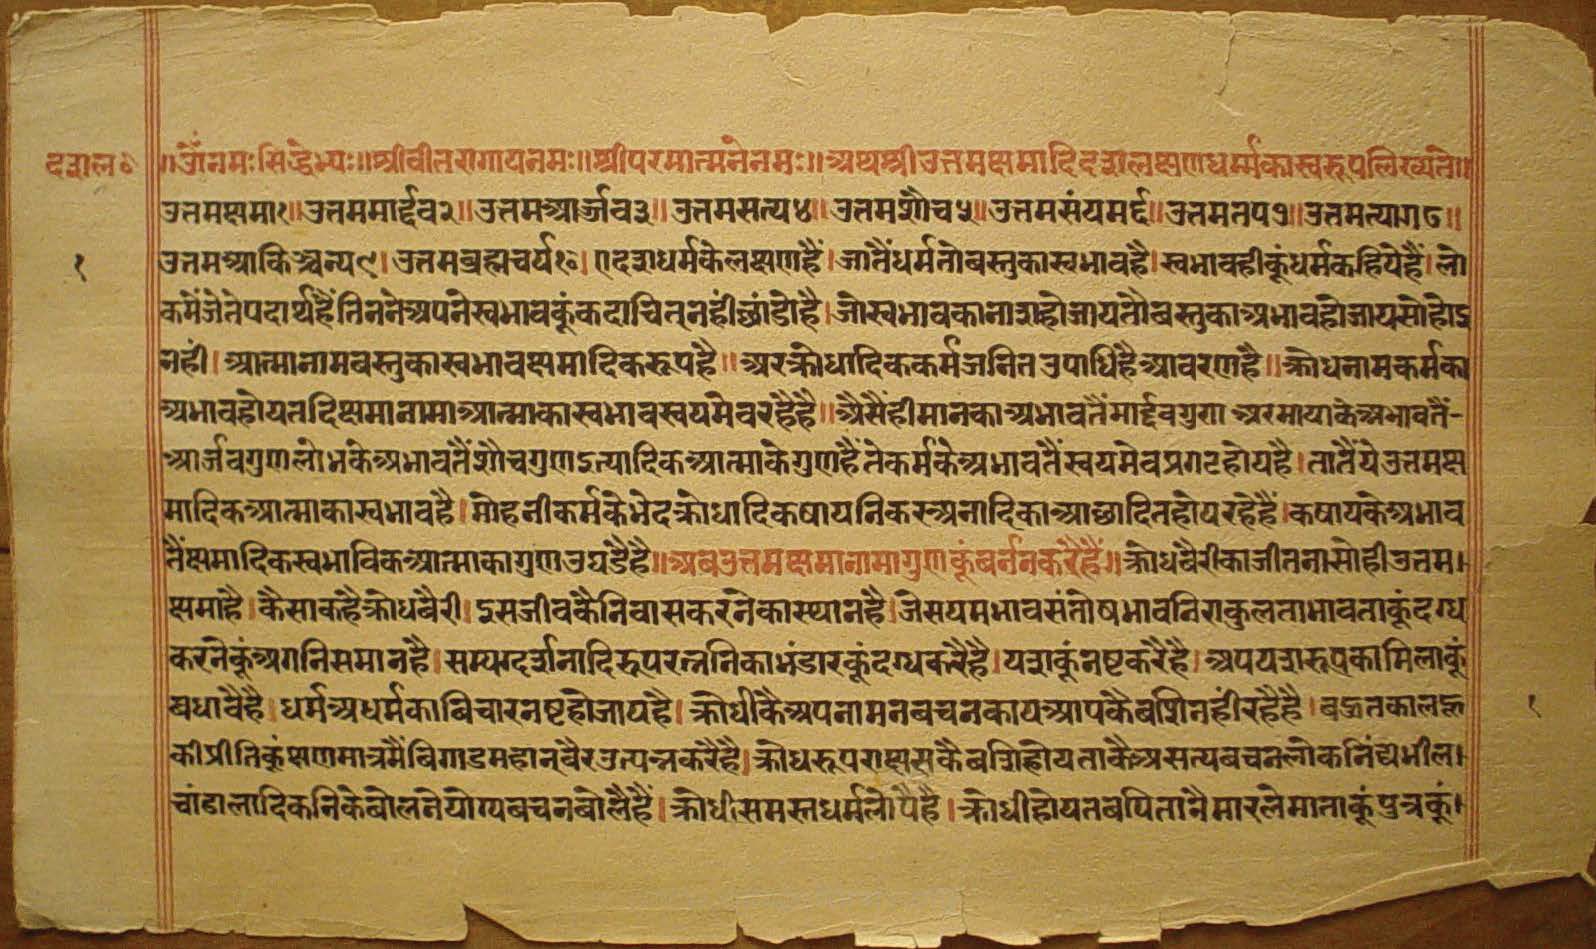 दशल० ॥ॐनमःसिद्धेभ्यः॥श्रीवीतरागायनमः॥श्रीपरमात्मनेनमः॥अथश्रीउत्तमक्षमादिदशलक्षणधर्म्मकास्वरूपलिख्यते॥
उत्तमक्षमा१॥उत्तममार्द्दव२॥उत्तमआर्ज्जव३॥उत्तमसत्य४॥उत्तमशौच५॥उत्तमसंयमर्६॥उत्तमतप७॥उत्तमत्याग८॥
१ उत्तमआकिञ्चन्य९।उत्तमब्रह्मचर्य१०।एदशधर्मकेलक्षणहैं।जातैंधर्मतोबस्तुकास्वभावहै।स्वभावहीकूंधर्मकहियेहैं।लो
कमेंजेतेपदार्थहैंतिननेअपनेस्वभावकूंकदाचित्नहींछांडोहै।जोस्वभावकानाशहोजायतौबस्तुकाअभावहोजायसोहोइ
नहीं।आत्मानामबस्तुकास्वभावक्षमादिकरूपहै॥अरक्रोधादिककर्मजनितउपाधिहैआवरणहै॥क्रोधनामकर्मका
अभावहोयतदिक्षमानामाआत्माकास्वभावस्वयमेवरहैहै॥अैसैंहीमानकाअभावतैंमार्द्दवगुण अरमायाकेअभावतैं-
आर्जवगुणलोभकेअभावतैंशौचगुणइत्यादिकआत्माकेगुणहैंतेकर्मकेअभावतैंस्वयमेवप्रगटहोयहै।तातैंयेउत्तमक्ष
मादिकआत्माकास्वभावहै।मोहनीकर्मकेभेदक्रोधादिककषायनिकरअनादिकाआछादितहोयरहेहैं।कषायकेअभाव
तैंक्षमादिकस्वभाविकआत्माकागुणउघडैहै॥अबउत्तमक्षमानामागुणकूंबर्ननकरैहैं॥क्रोधबैरीकाजीतनासोहीउत्तम।
क्षमाहै।कैसाकहैक्रोधबैरी।इसजीवकैनिवासकरनेकास्थानहै।जेसयमभावसंतोषभावनिराकुलताभावताकूंदग्ध
करनेकूंअगनिसमानहै।सम्यग्दर्शनादिरूपरत्ननिकाभंडारकूंदग्धकरैहै।यशकूंनष्टकरैहै।अपयशरूपकामिलाकूं
बधावैहै।धर्मअधर्मकाबिचारनष्टहोजायहै।क्रोधीकैअपनामनबचनकायआपकैबशिनहींरहैहै।बहुतकालह्न १
कीप्रीतिकूंक्षणमात्रमैंबिगाडमहान्बैरउत्पन्नकरैहै।क्रोधरूपराक्षसकैबशिहोयताकैअसत्यबचनलोकनिंद्यभील।
चांडालादिकनिकेबोलनेयोग्यबचनबोलैहैं।क्रोधीसमस्तधर्मलोपैहै।क्रोधीहोयतबपितानैमारलेमाताकूंपुत्रकूं।